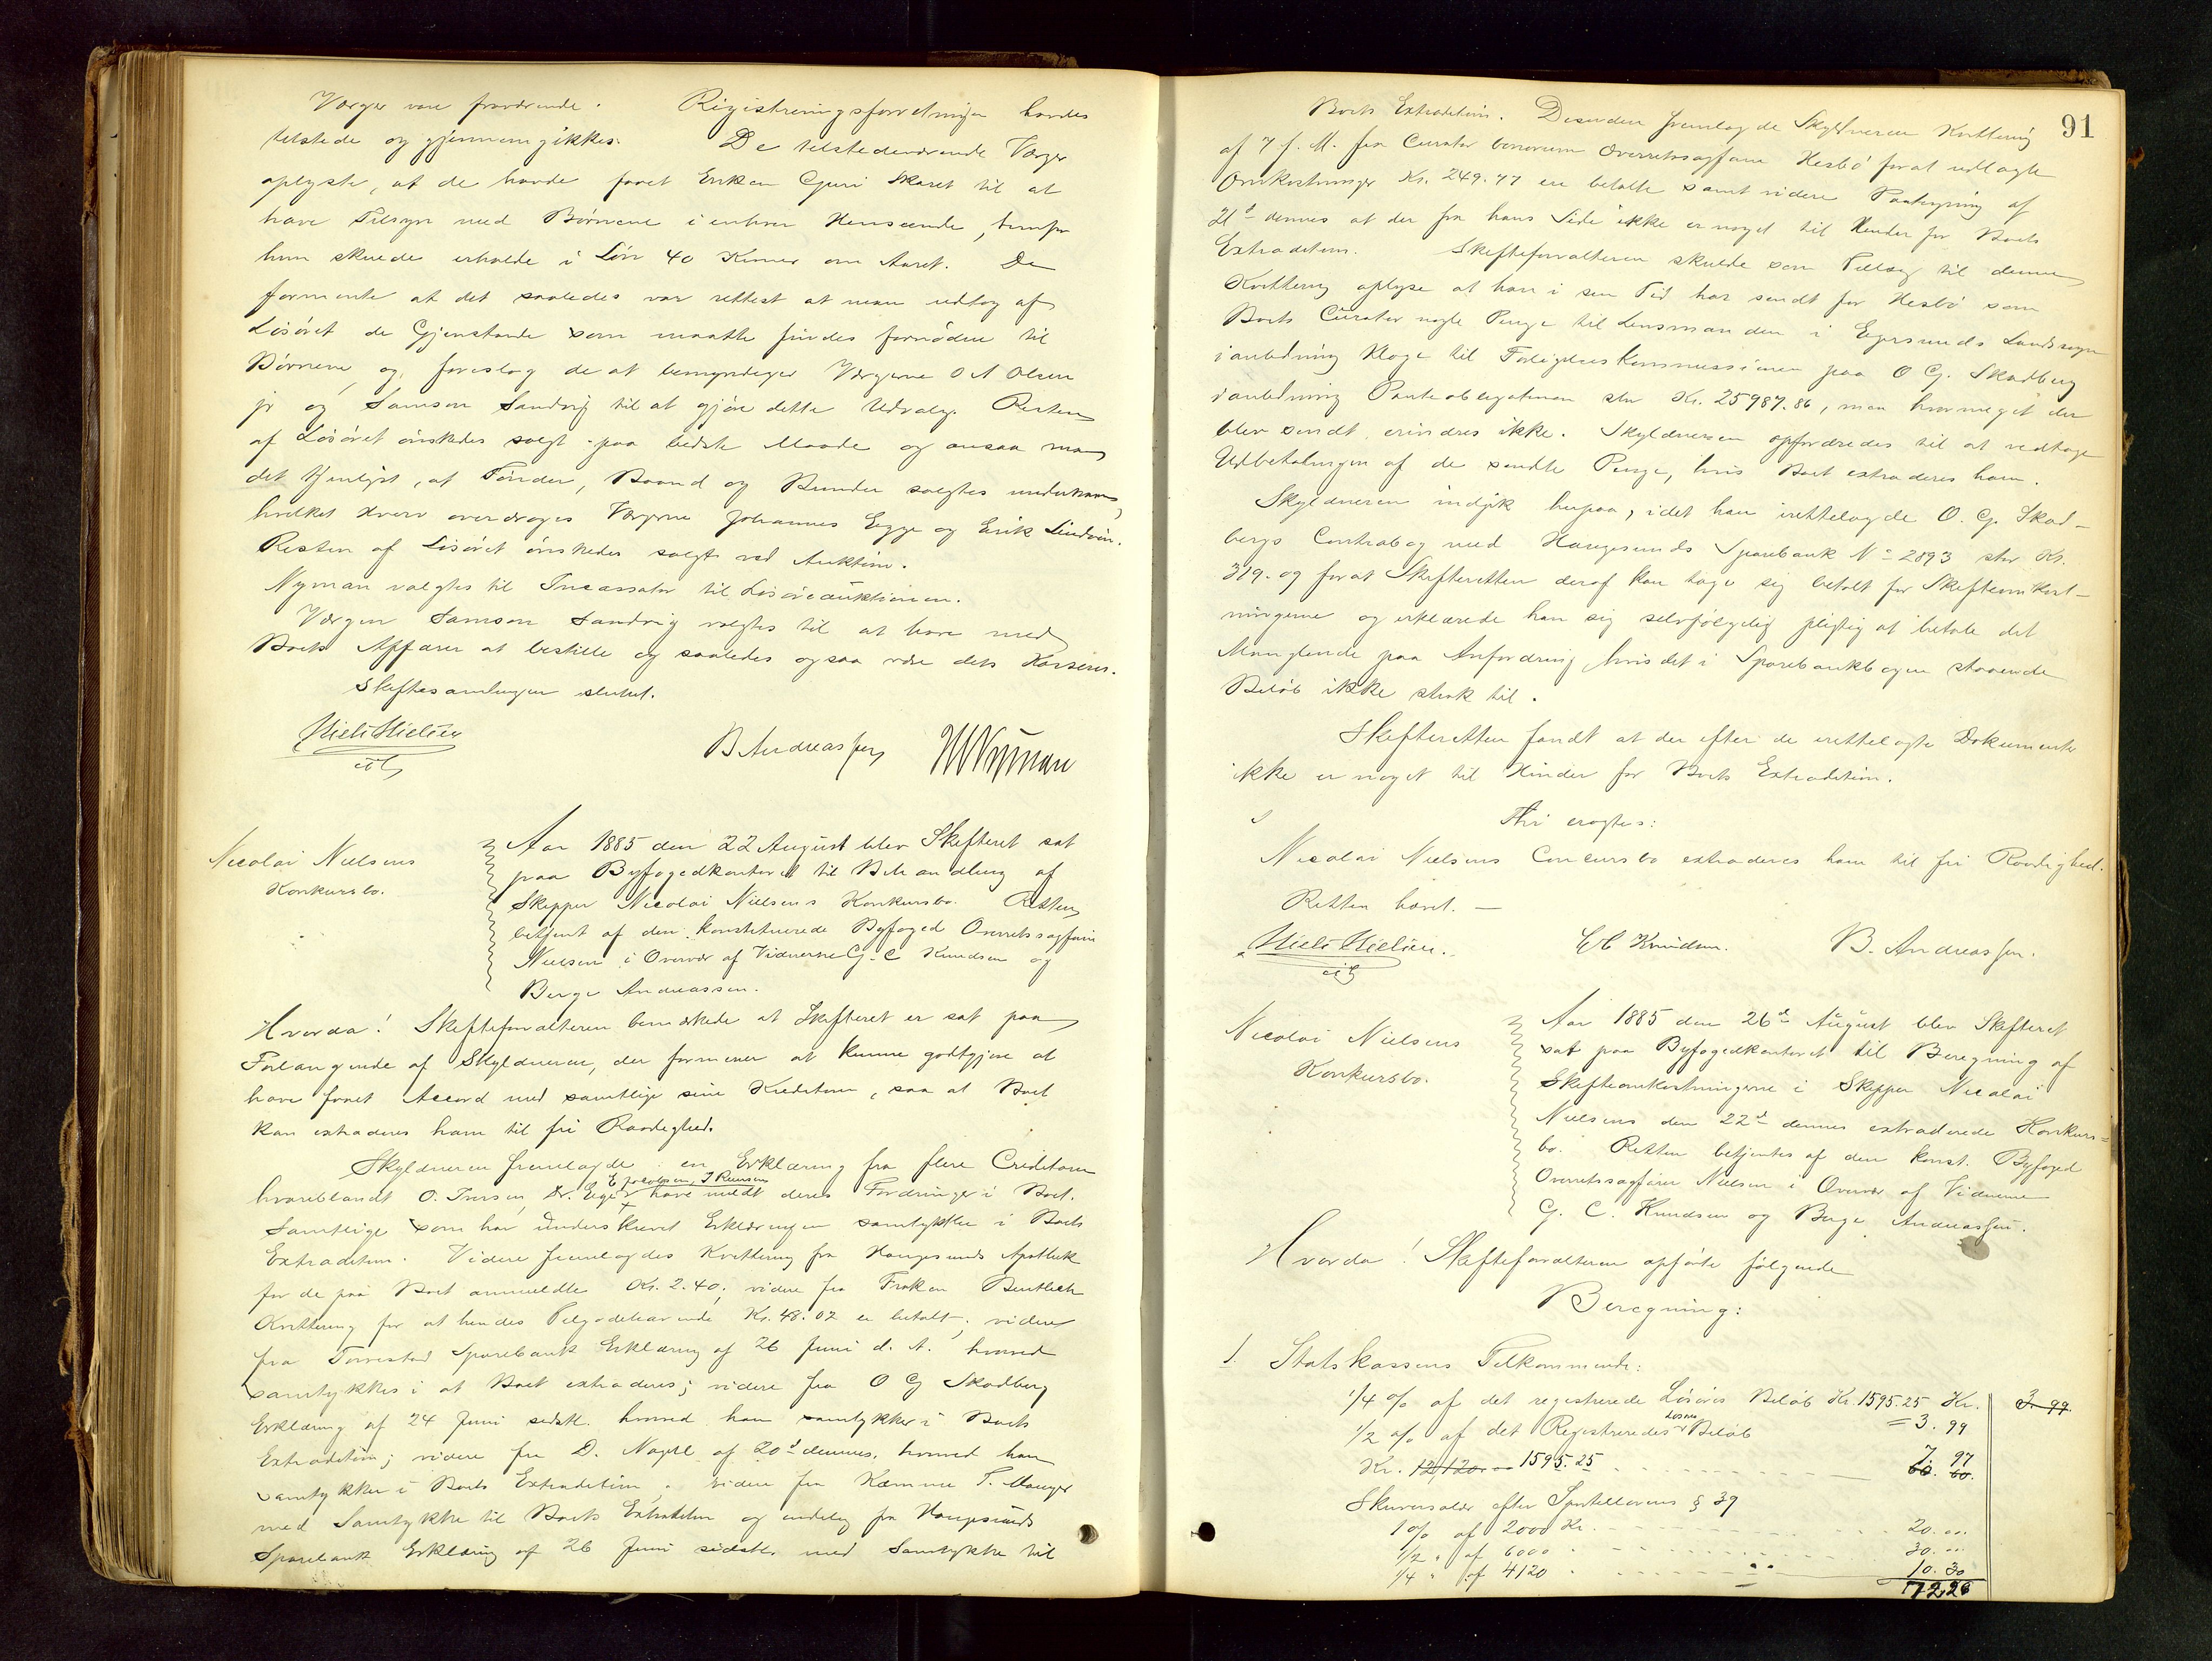 Værger vare fraværende. Registreringsforretningen havdes
tilstede og gjennemgikkes. De tilstedeværende Værger
oplyste, at de havde faaet Enken Guri Skaret til at
have Tilsyn med Børnene i enhver Henseende, hvorfor
hun skulde erholde i Løn 40 Kroner om Aaret. De
formente at det saaledes var rettest at man udtog af
Løsøret de Gjenstande som maatte findes fornødne til
Børnene, og foreslog de at bemyndiges Værgerne O A Olsen
jr og Samson Sandvig til at gjøre dette Udvalg. Resten
af Løsøret ønskedes solgt paa bedste Maade og ansaa man
det tjenligst, at Tønder, Baand og Bunder solgtes underhaanden,
hvilket Hverv overdroges Værgerne Johannes Egge og Erik Lindøen.
Resten af Løsøret ønskedes solgt ved Auktion.
Nyman valgtes til Incassator til Løsøreauktionen.
Værgen Samson Sandvig valgtes til at have med
Boets Affærer at bestille og saaledes ogsaa være dets Kasserer.
Skiftesamlingen sluttet.
Niels Nielsen
cst
B Andreassen
Nyman
Nicolai Nielsens
Konkursbo.
Aar 1885 den 22 August blev Skifteret sat
paa Byfogedkontoret til Behandling af
Skipper Nicolai Nielsens Konkursbo. Retten
betjent af den konstituerede Byfoged Overretssagfører
Nielsen i Overvær af Vidnerne G. C Knudsen og
Berge Andreassen.
Hvorda! Skifteforvalteren bemærkede at Skifteret er sat paa
Forlangende af Skyldneren, der formener at kunne godtgjøre at
have faaet Accord med samtlige sine Kreditorer, saa at Boet
kan extraderes ham til fri Raadighed.
Skyldneren fremlagde en Erklæring fra flere Creditorer
E Jacobsen, J
hvoriblandt O. Iversen, Dr. Eger have meldt deres Fordringer i Boet.
Samtlige som har underskrevet Erklæringen samtykker i Boets
Extradition. Videre fremlagdes Kvittering fra Haugesunds Apothek
for de paa Boet anmeldte Kr. 2.40; videre fra Frøken Bentlich
Kvittering for at hendes Tilgodehavende Kr. 48.02 er betalt; videre
fra Torvestad Sparebank Erklæring af 26 Juni d. A. hvorved
samtykkes i at Boet extraderes; videre fra O G Skadberg
Erklæring af 24 Juni sidstl. hvorved han samtykker i Boets
Extradition; videre fra D. Nagel af 20d dennes, hvorved han
samtykker i Boets Extradition, videre fra Kæmner T. Mauger
med Samtykke til Boets Extradition og endelig fra Haugesunds
Sparebank Erklæring af 26 Juni sidstl. med Samtykke til
91
Boets Extradition. Desuden fremlagde Skyldneren Kvittering
af 7 f. M. fra Curator bonorum Overretssagfører Hesbø forat udlagte
Omkostninger Kr. 249.77 ere betalte samt videre Paategning af
21d dennes at der fra hans Side ikke er noget til Hinder for Boets
Extradition. Skifteforvalteren skulde som Tillæg til denne
Kvittering oplyse at han i sin Tid har sendt for Hesbø som
Boets Curator nogle Penge til Lensmanden i Egersunds Landsogn
i anledning Klage til Forligelseskommissionen paa O G. Skadberg
i anledning Panteobligationen stor Kr. 25987.86, men hvormeget der
blev sendt, erindres ikke. Skyldneren opfordredes til at vedtage
Udbetalingen af de sendte Penge, hvis Boet extraderes ham.
Skyldneren indgik herpaa, idet han irettelagde O. G. Skad-
bergs Contrabog med Haugesunds Sparebank No 2893 stor Kr.
319. og forat Skifteretten deraf kan tage sig betalt for Skifteomkost-
ningerne og erklærede han sig selvfølgelig pligtig at betale det
Manglende paa Anfordring hvis det i Sparebankbogen staaende
Beløb ikke strak til.
Skifteretten fandt at der efter de irettelagte Dokumenter
ikke er noget til Hinder for Boets Extradition.
Thi eragtes:
Nicolai Nielsens Concursbo extraderes ham til fri Raadighed.
Retten hævet. —
Niels Nielsen.
cst
G C Knudsen.
B. Andreassen.
Nicolai Nielsens
Konkursbo.
Aar 1885 den 26d August blev Skifteret
sat paa Byfogedkontoret til Beregning af
Skifteomkostningerne i Skipper Nicolai
Nielsens den 22d dennes extraderede Konkurs=
bo. Retten betjentes af den konst. Byfoged
Overretssagfører Nielsen i Overvær af Vidnerne
G. C. Knudsen og Berge Andreassen.
Hvorda! Skifteforvalteren opførte følgende
Beregning:
1. Statskassens Tilkommende:
1/4 % af det registrerede Løsøres Beløb Kr. 1595.25 Kr. 3.99.
1/2 % af det Registreredes Løsøre Beløb = 3.99
Kr. 12,120.00 1595.25 7.97
60.60.
Skriversalær efter Sportellovens § 39
1 % af 2000 Kr. 20.00
1/2 " af 6000 " 30.00
1/4 " af 4120 " 10.30
72,26